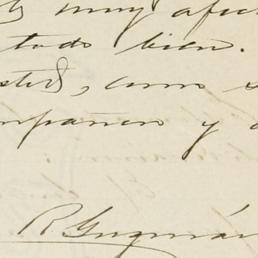 muy afec
todo bien.
usted, como s
ompañero y a
R Guzmán